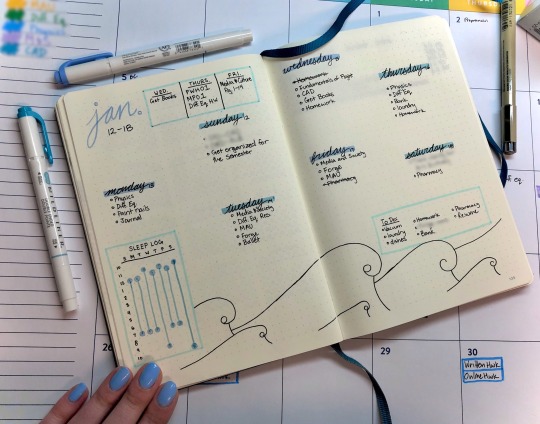 jan.
12-18
WED
Get Books
THURS
Diff. Eq. HW
FRI
sunday 12
Get organized for
the Semester
monday
Physics
Diff. Eq.
Paint nails
Journal
tuesday
Media & Society
Diff. Eq. Rec
MAU
Forge
Ballet
SLEEP LOG
S M T W T F S
wednesday
Homework
Fundamentals of Page
CAD
Get Books
Homework
thursday
Physics
Diff. Eq.
Bank
laundry
Homework
friday
Media and Society
Forge
MAU
Pharmacy
saturday
Pharmacy
To Do:
vacuum
laundry
dishes
Homework
Bank
Pharmacy
Resume
1
2
28
29
30
Written Hwk
Online Hwk